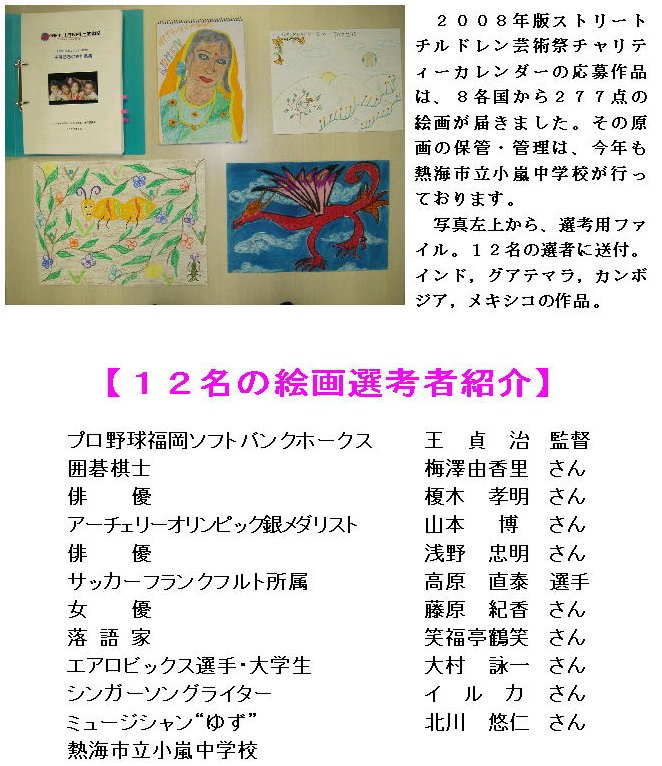 ２００８年版ストリート
チルドレン芸術祭チャリテ
ィーカレンダーの応募作品
は、８各国から２７７点の
絵画が届きました。その原
画の保管・管理は、今年も
熱海市立小嵐中学校が行っ
ております。
写真左上から、選考用ファ
イル。１２名の選者に送付。
インド，グアテマラ，カンボ
ジア，メキシコの作品。
【１２名の絵画選考者紹介】
プロ野球福岡ソフトバンクホークス　王　貞　治　監督
囲碁棋士　梅澤由香里　さん
俳　優　榎木　孝明　さん
アーチェリーオリンピック銀メダリスト　山本　博　さん
俳　優　浅野　忠明　さん
サッカーフランクフルト所属　高原　直泰　選手
女　優　藤原　紀香　さん
落 語 家　笑福亭鶴笑　さん
エアロビックス選手・大学生　大村　詠一　さん
シンガーソングライター　イ　ル　カ　さん
ミュージシャン“ゆず”　北川　悠仁　さん
熱海市立小嵐中学校